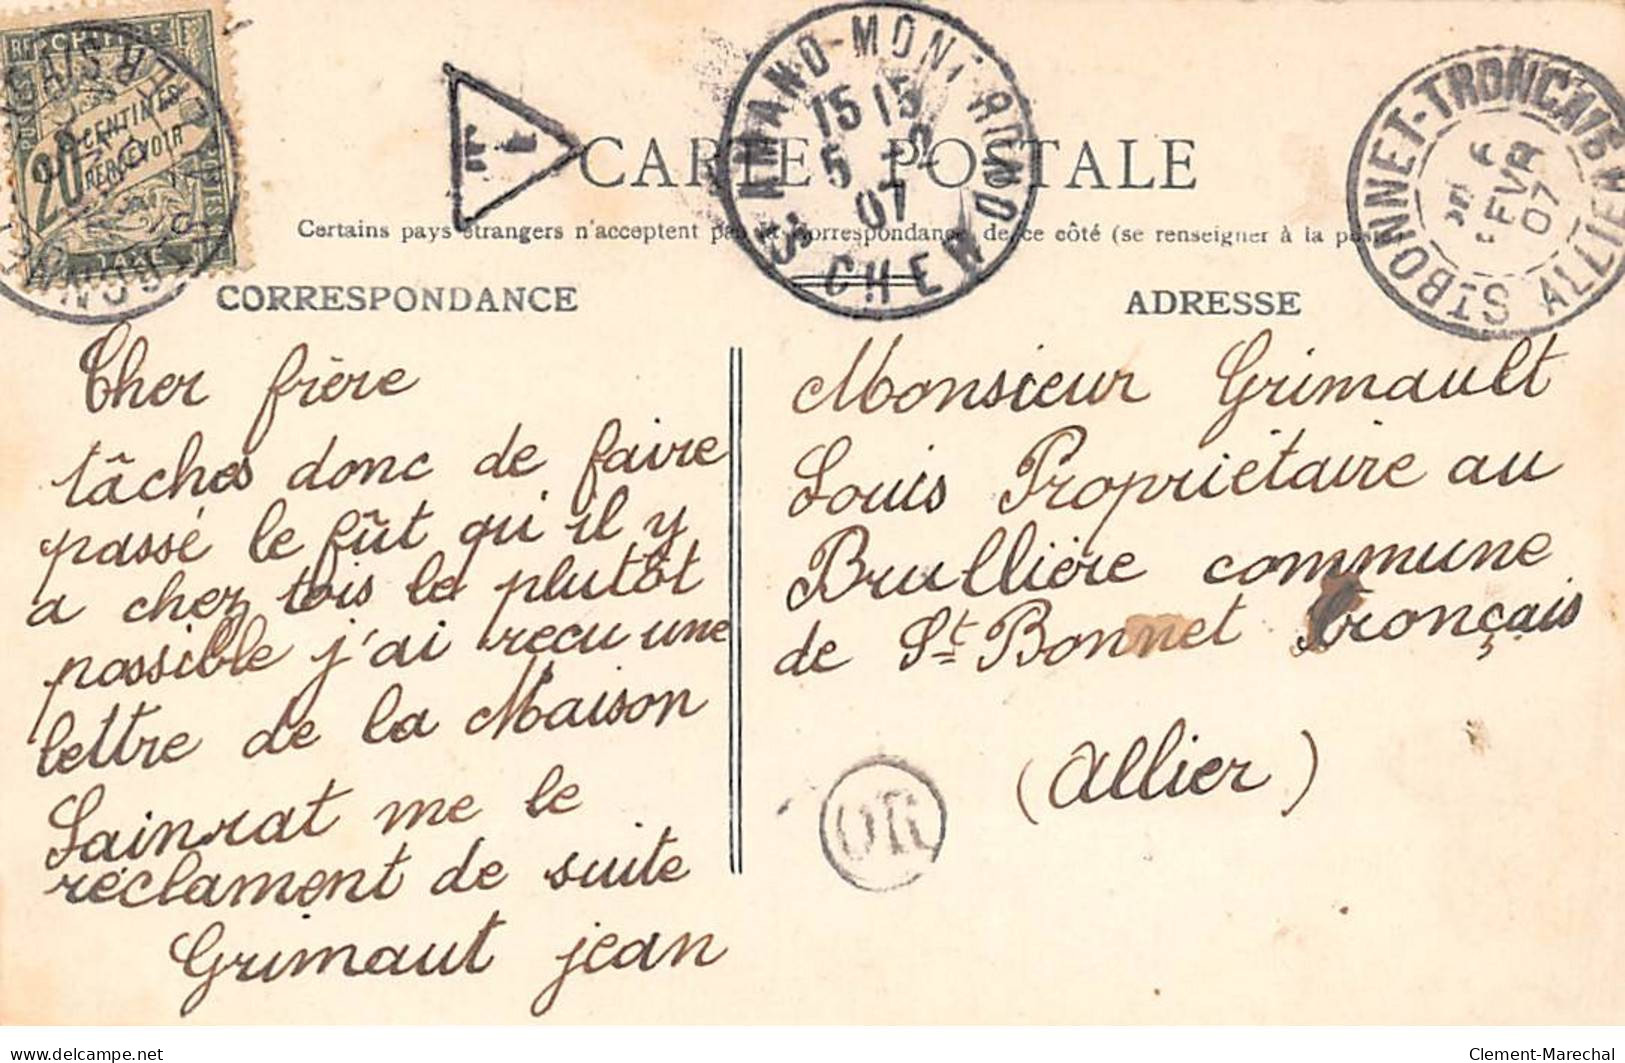 CHIFFRE
POSTES
20 CENTIMES
A PERCEVOIR
TAXE
CARTE POSTALE
ST AMAND-MONTROND
15 15
5 -2
07
CHER
ST BONNET-TRONÇAIS
6
FEVR
07
ALLIER
Certains pays étrangers n'acceptent pas la correspondance de ce côté (se renseigner à la poste
CORRESPONDANCE
ADRESSE
Cher frère
tâches donc de faire
passé le fût qu'il y
a chez tois le plutôt
possible j'ai recu une
lettre de la Maison
Sainrat me le
réclament de suite
Grimaut jean
Monsieur Grimault
Louis Propriétaire au
Brullière commune
de St Bonnet Tronçais
(Allier)
OR
www.delcampe.net
Clement-Marechal